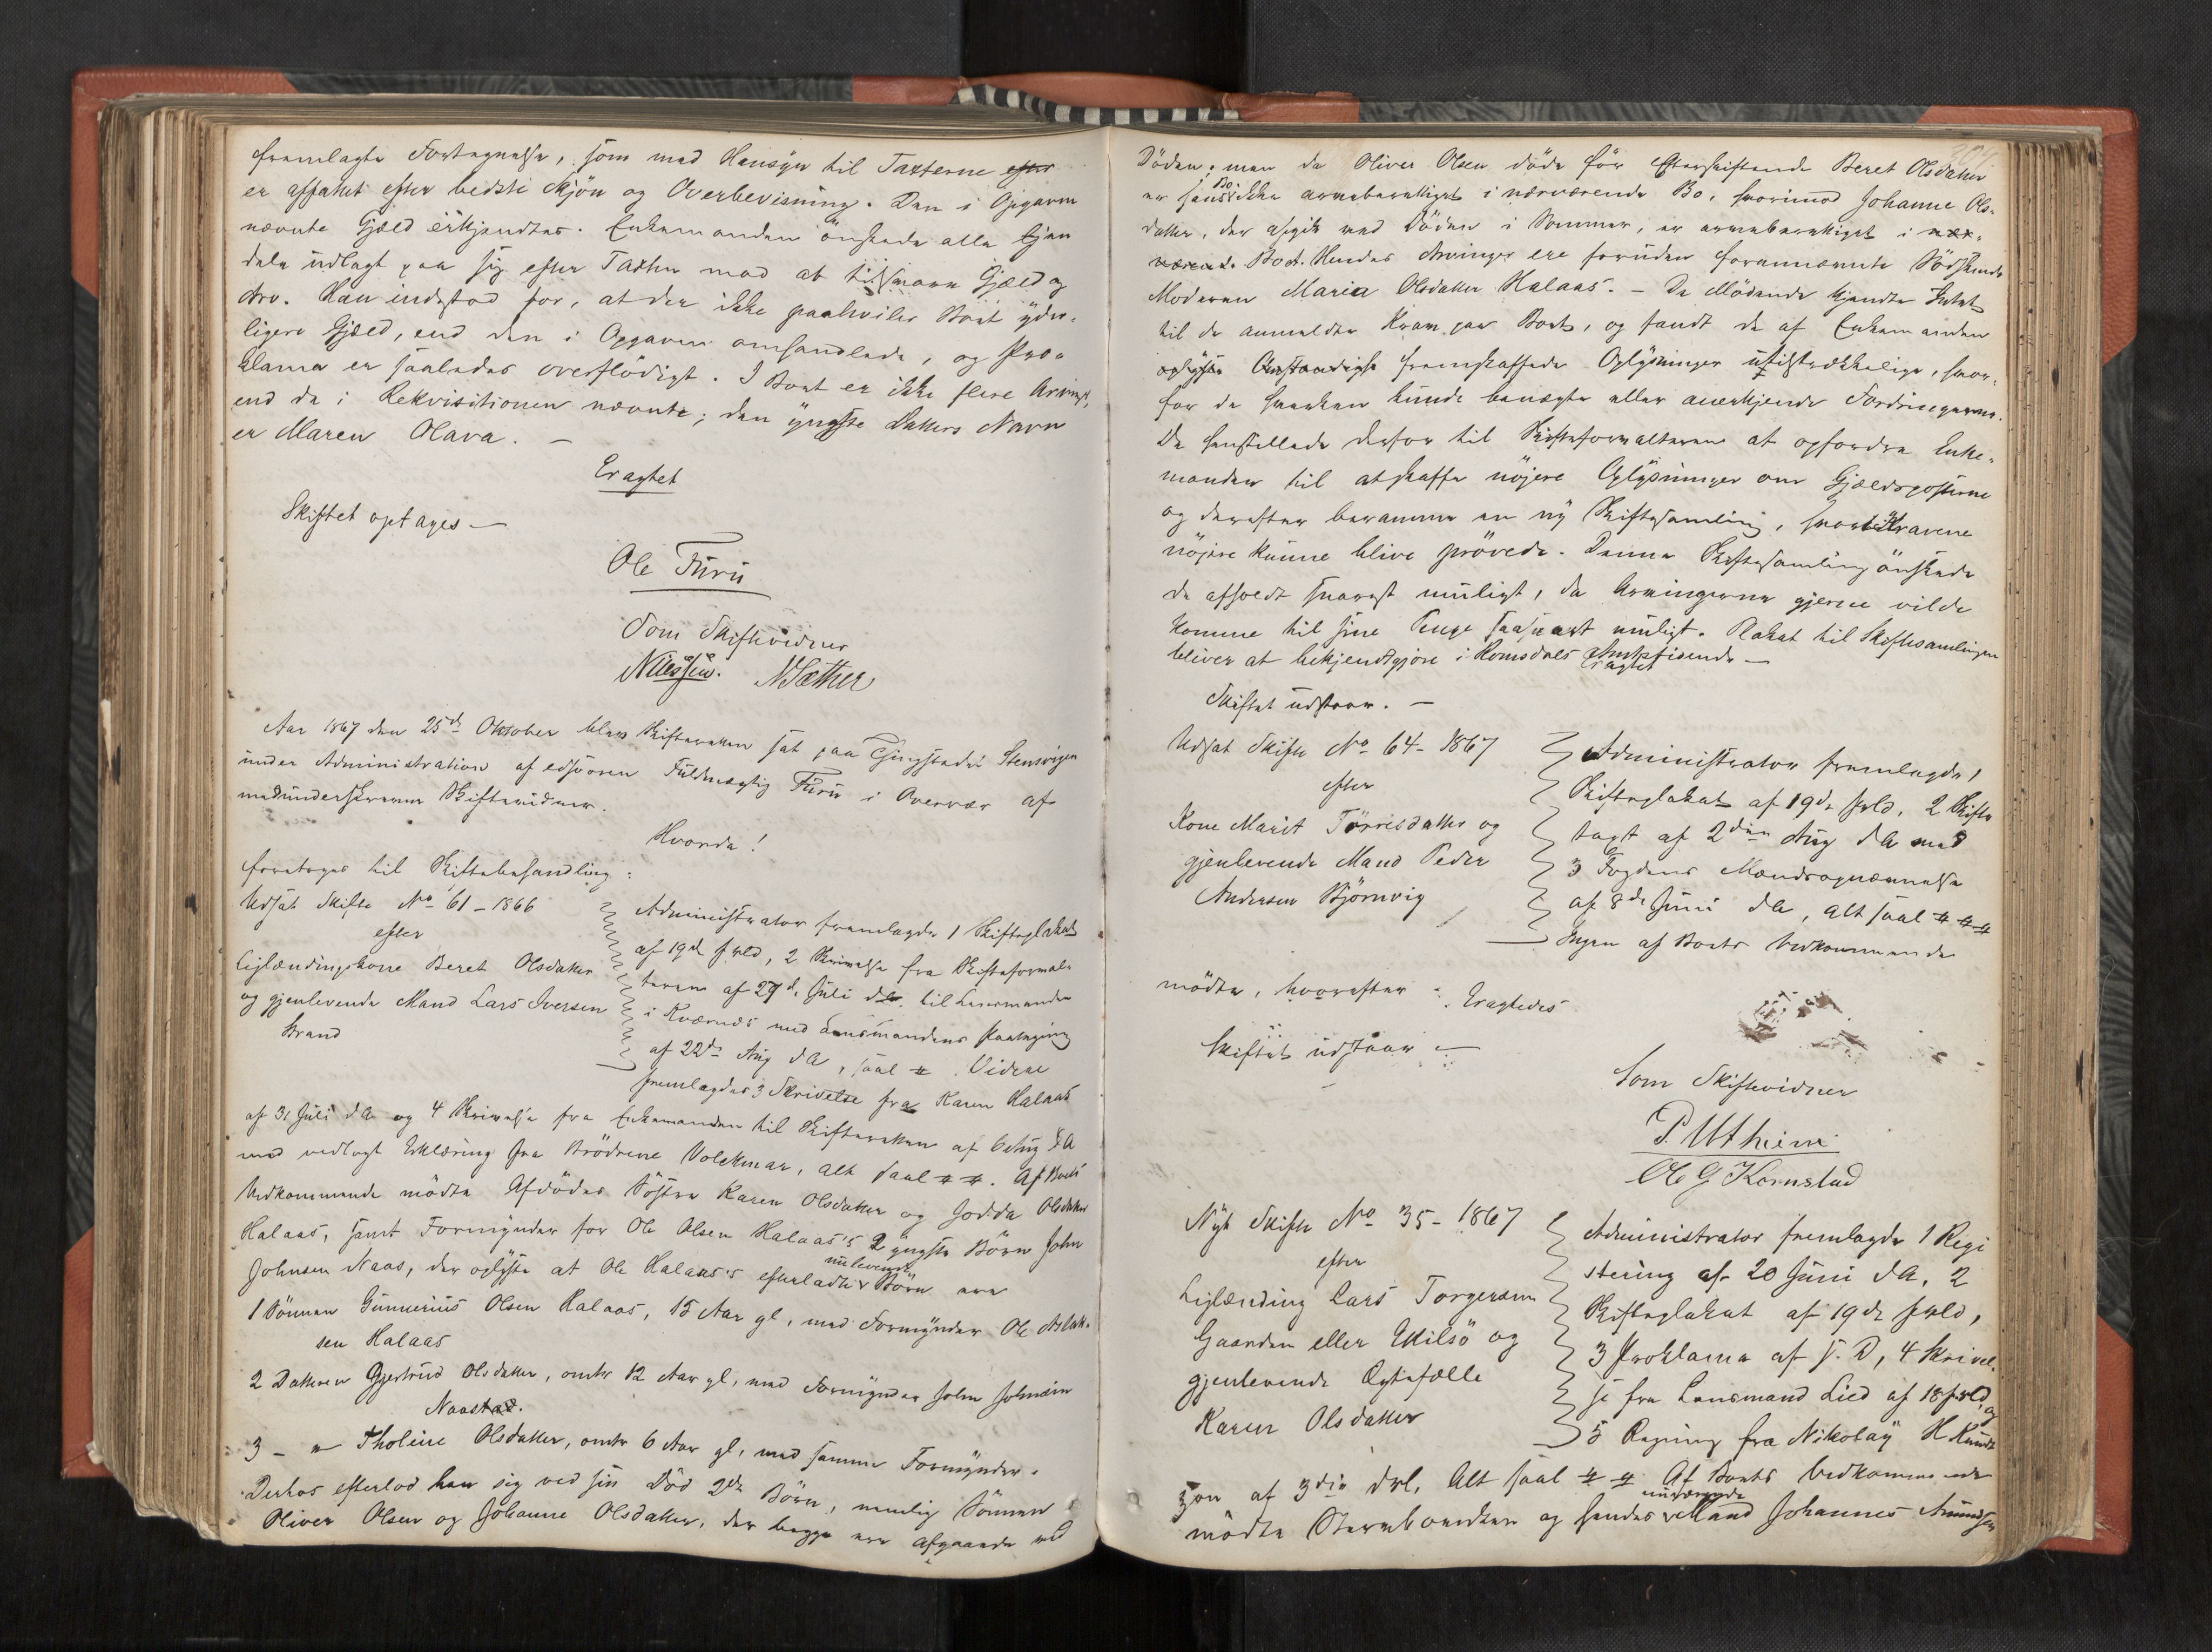 fremlagte Fortegnelse, som med Hensyn til Taxterne efter
er affattet efter bedste Skjøn og Overbevisning. Den i Opgaven
nævnte Gjæld erkjendtes. Enkemanden ønskede alle Ejen
dele udlagt paa sig efter Taxten mod at tilsvare Gjæld og
Arv. Han indestod for, at der ikke paahviler Boet yder-
ligere Gjæld, end den i Opgaven omhandlede, og Pro-
klama er saaledes overflödigt. I Boet er ikke flere Arvinger,
end de i Rekvisitionen nævnte; den yngste Datters Navn
er Maren Olava. —
Eragtet
Skiftet optages —
Ole Furu
Som Skiftevidner
Nilessen. N Sæther
Aar 1867 den 25de Oktober blev Skifteretten sat paa Thingstedet Stensvigen
under Administration af edsvoren Fuldmægtig Furu i Overvær af
medunderskrevne Skiftevidner.
Hvorda!
foretoges til Skiftebehandling:
Udsat Skifte No 61 - 1866
efter
Leglændingskone Beret Olsdatter
og gjenlevende Mand Lars Iversen
Strand
Administrator fremlagde 1 Skifteplakat
af 19de f. Md, 2 Skrivelse fra Skifteforval-
teren af 27de Juli d. A. til Lensmanden
i Kværnes med Lensmandens Paategning
af 22de Aug d A, saal # . Videre
fremlagdes 3 Skrivelse fra Karen Halaas
af 31 Juli d A og 4 Skrivelse fra Enkemanden til Skifteretten af 6 Aug d A
med vedlagt Erklæring fra Brödrene Volckmar, alt saal # #. Af Boets
Vedkommende mödte Afdödes Söstre Karen Olsdatter og Jodda Olsdatter
Halaas, samt Formynder for Ole Olsen Halaas's 2 yngste Börn John
Johnsen Naas, der oplyste at Ole Halaas's efterladte nulevende Börn ere
1 Sönnen Gunnerius Olsen Halaas, 15 Aar gl, med Formynder Ole Aslak-
sen Halaas
2 Datteren Gjertrud Olsdatter, omtr 12 Aar gl, med Formynder John Johnsen
Naastad.
3 - " Tholine Olsdatter, omtr 6 Aar gl, med samme Formynder.
Derhos efterlod han sig ved sin Död 2de Börn, nemlig Sönnen
Oliver Olsen og Johanne Olsdatter, der begge ere afgaaede ved
Döden; men da Oliver Olsen döde för Efterskiftende Beret Olsdatter
er hans Bo ikke arveberettiget i nærværende Bo, hvorimod Johanne Ols-
datter, der afgik ved Döden i Sommer, er arveberettiget i nær-
værende Boet. Hendes Arvinger ere foruden forannævnte Södskende
Moderen Maria Olsdatter Halaas. — De Mödende kjendte Intet
til de anmeldte Krav paa Boet, og fandt de af Enkemanden
oplyste Omstændigh fremskaffede Oplysninger utilstrækkelige, hvor-
for de hverken kunde benægte eller anerkjende Fordringerne.
De henstillede derfor til Skifteforvalteren at opfordre Enke-
manden til at skaffe nöjere Oplysninger om Gjældsposterne
og derefter beramme en ny Skiftesamling, hvor Kravene
nöjere kunne blive prövede. Denne Skiftesamling önskede
de afholdt snarest muligt, da Arvingerne gjerne vilde
komme til sine Penge saasnart muligt. Plakat til Skiftesamlingen
bliver at bekjendtgjöre i Romsdals Amtstidende —
Eragtet
Skiftet udstaar. —
Udsat Skifte No 64 - 1867
efter
Kone Marit Törrisdatter og
gjenlevende Mand Peder
Andersen Björnvig
Administrator fremlagde 1
Skifteplakat af 19de f. Md, 2 Skifte
taxt af 2den Aug d A med
3 Fogdens Mændsopnævnelse
af 8de Juni d A, alt saal # # #
Ingen af Boets Vedkommende
mödte, hvorefter
Eragtedes
Skiftet udstaar —
Som Skiftevidner
P. Utheim
Ole G Kornstad
Nyt Skifte No 35 - 1867
efter
Leglænding Lars Torgersen
Gaarden eller Ekilsö og
gjenlevende Ægtefælle
Karen Olsdatter
Administrator fremlagde 1 Regi
strering af 20 Juni d A, 2
Skifteplakat af 19de f. Md,
3 Proklama af s. D, 4 Skrivel-
se fra Lensmand Lied af 18 f. Md, og
5 Regning fra Nikolay H Knudt
zon af 3die d M, Alt saal # # Af Boets Vedkommende
mödte Stervboenken og hendes nuværende Mand Johannes Amundsen